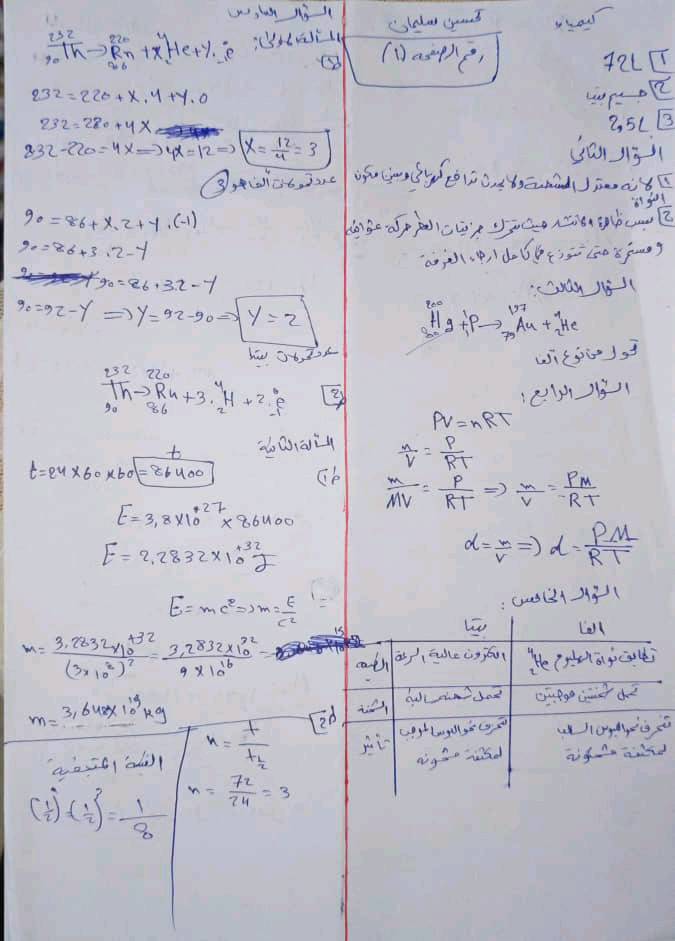 كيمياء
تحسين سليمان
رقم الصفحة (1)
1] 72L
2] جسيم بيتا
3] 2,5L
السؤال الثاني
1] لأنه معتدل الشحنة ولا يحدث تدافع كهربائي وبين مكون النواة
2] بسبب ظاهرة الانتشار حيث تتحرك جزيئات العطر حركة عشوائية
ومستمرة حتى تتوزع في كامل ارجاء الغرفة
السؤال الثالث:
²⁰⁰₈₀Hg + ¹₁P → ¹⁹⁷₇₉Au + ⁴₂He
تحول من نوع الفا
السؤال الرابع:
PV = nRT
n/V = P/RT
m/MV = P/RT ⇒ m/V = PM/RT
d = m/V ⇒ d = PM/RT
السؤال الخامس:
الفا بيتا
تطابق نواة الهليوم ⁴₂He الكترون عالية السرعة الطبيعة
تحمل شحنتين موجبتين تحمل شحنة سالبة الشحنة
تنحرف نحو اللبوس السالب لمكثفة مشحونة تنحرف نحو اللبوس الموجب لمكثفة مشحونة تأثير
السؤال السادس
المسألة الأولى:
1]
²³²₉₀Th → ²²⁰₈₆Rn + x ⁴₂He + y ⁰₋₁e
232 = 220 + x.4 + y.0
232 = 220 + 4x
232 - 220 = 4x ⇒ 4x = 12 ⇒ x = 12/4 = 3
عدد تحولات ألفا هو 3
90 = 86 + x.2 + y.(-1)
90 = 86 + 3.2 - y
90 = 86 + 3.2 - y
90 = 92 - y ⇒ y = 92 - 90 ⇒ y = 2
عدد تحولات بيتا
2]
²³²₉₀Th → ²²⁰₈₆Rn + 3. ⁴₂H + 2. ⁰₋₁e
المسألة الثانية
ط1
t
t = 24 × 60 × 60 = 86400
E = 3,8 × 10⁺²⁷ × 86400
E = 2,2832 × 10⁺³² J
E = mc² ⇒ m = E/c²
m = 3,2832 × 10⁺³² / (3 × 10⁸)² = 3,2832 × 10³² / 9 × 10¹⁶ =
m = 3,648 × 10¹⁵ kg
ط2
n = t / t½
n = 72/24 = 3
النسبة المتبقية
(½)ⁿ = (½)³ = 1/8